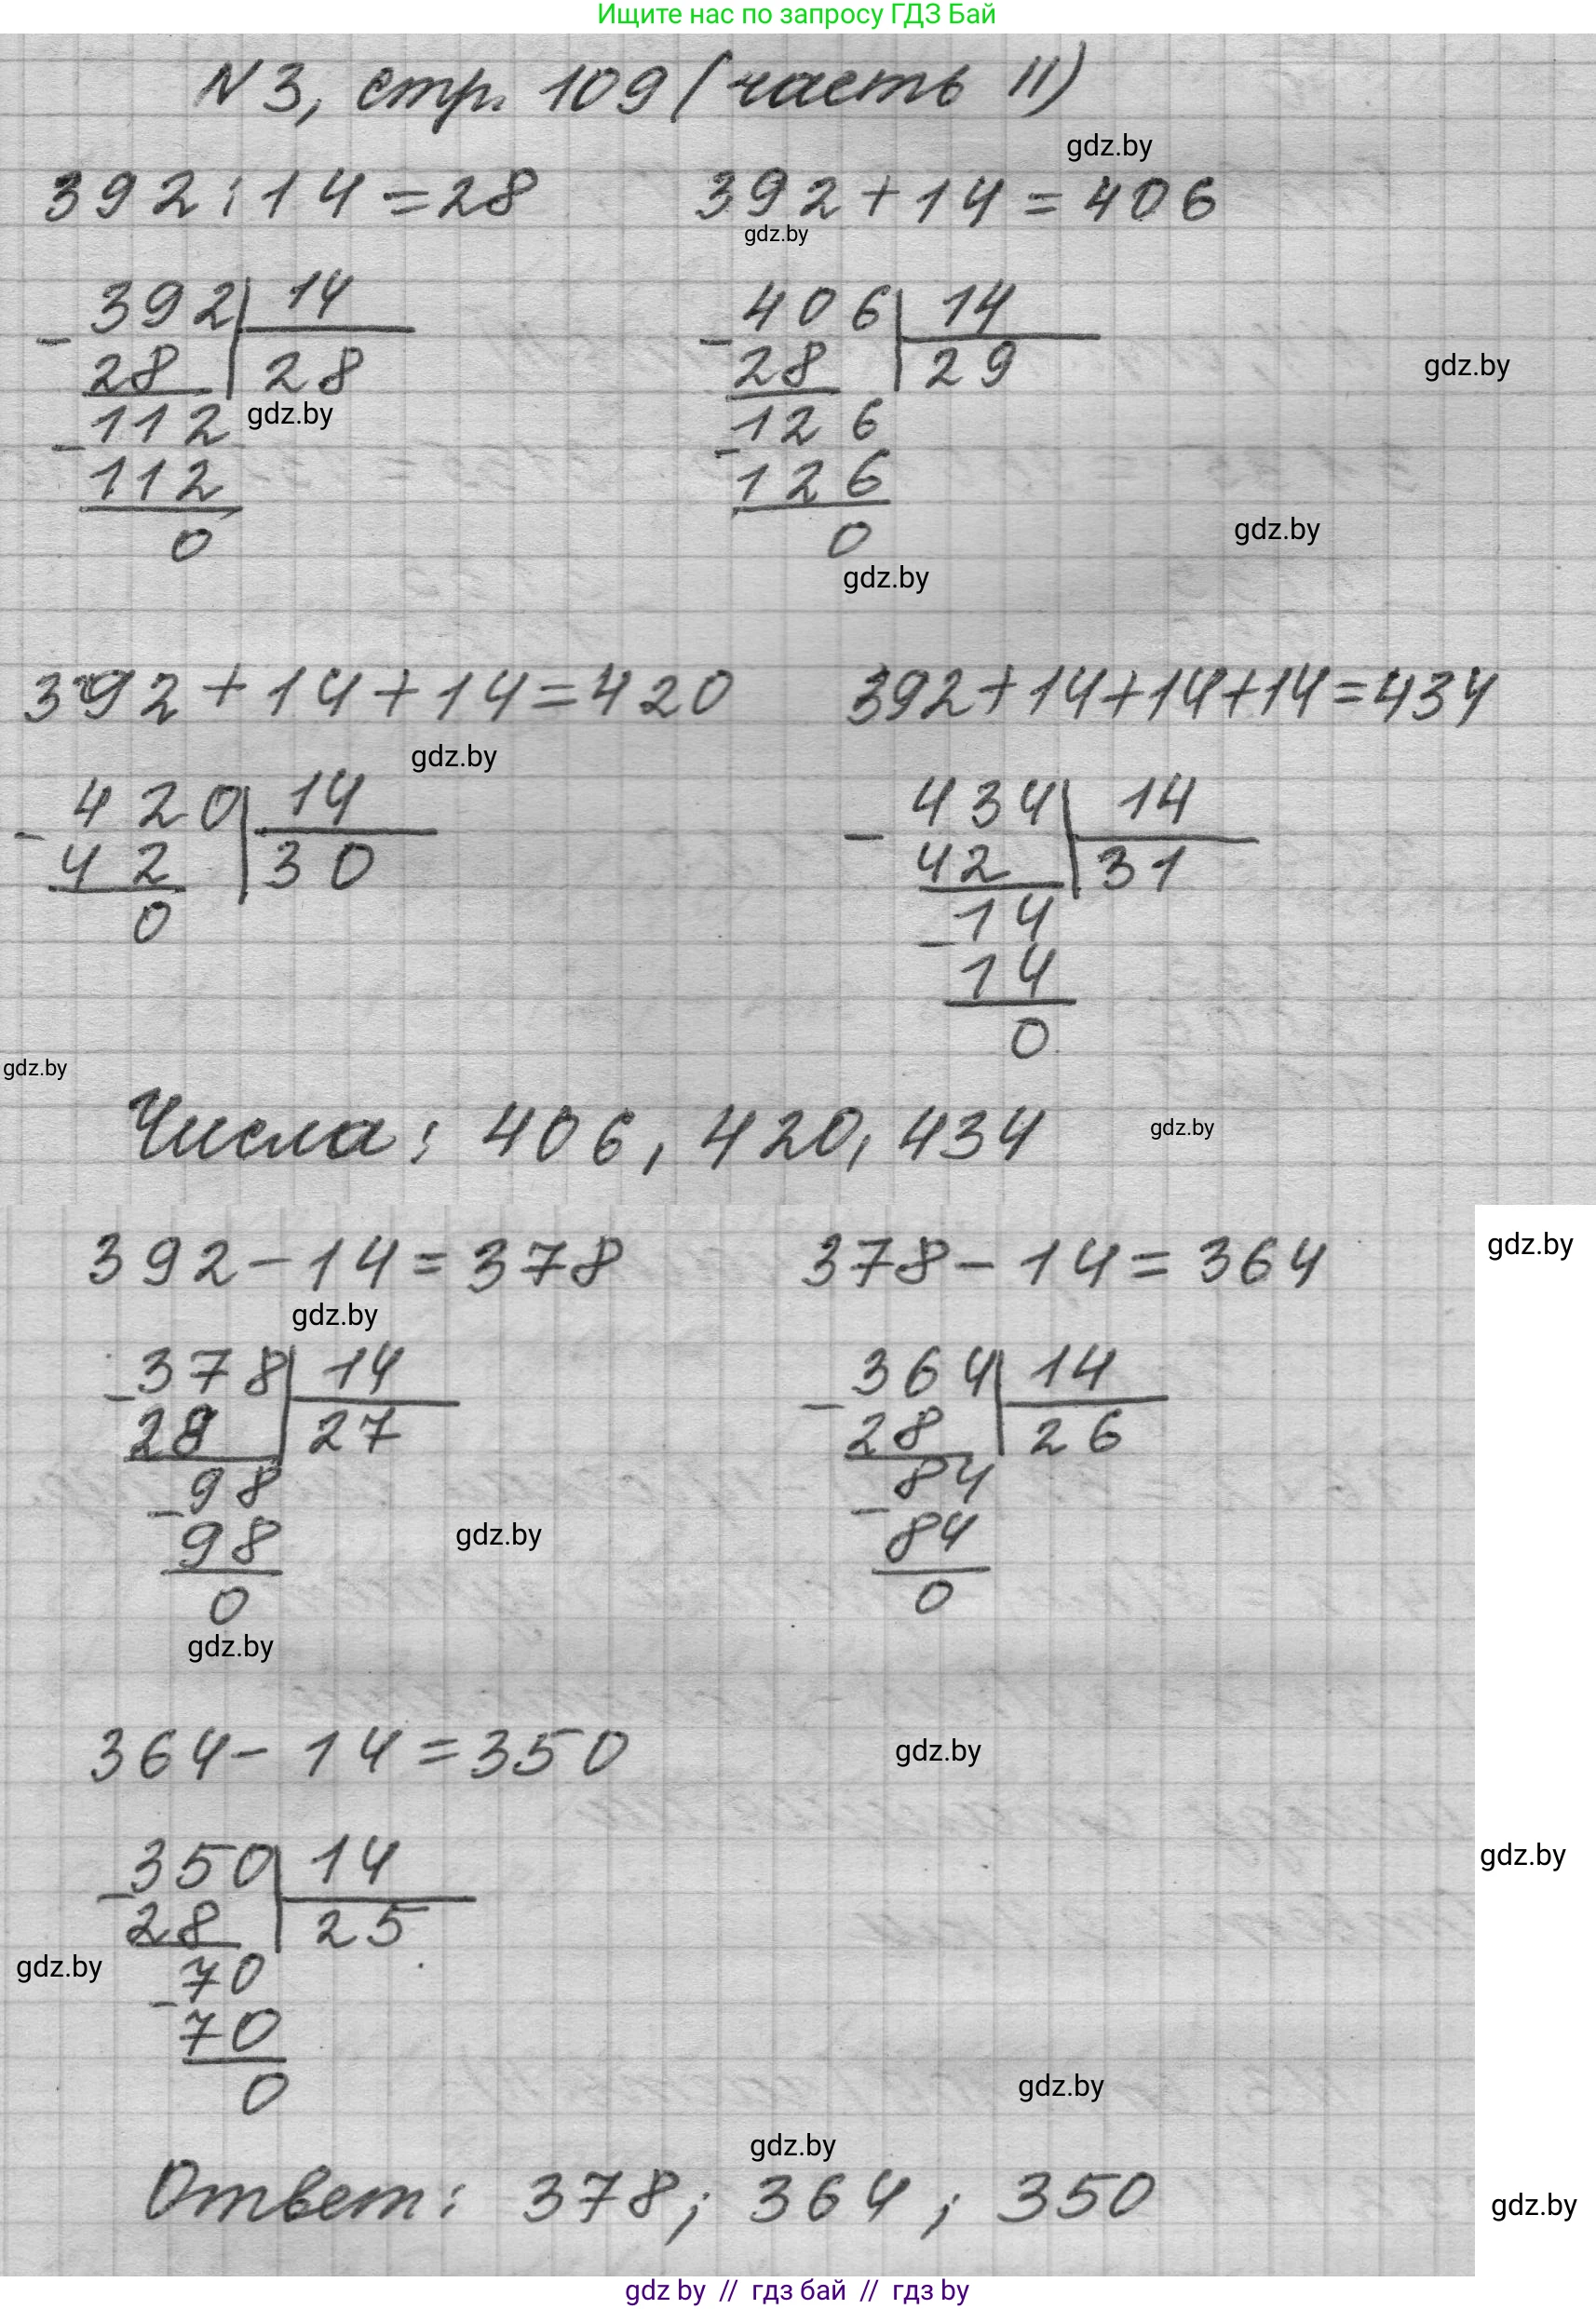 Ищите нас по запросу ГДЗ Бай
N 3, стр. 109 (часть II)
gdz.by
392 : 14 = 28 392 + 14 = 406
gdz.by
392 14 406 14
- -
28 28 28 29
gdz.by
gdz.by
112 126
- -
112 126
gdz.by
0 0
gdz.by
392 + 14 + 14 = 420 392 + 14 + 14 + 14 = 434
gdz.by
420 14 434 14
- -
42 30 42 31
0 14
-
14
0
gdz.by
Числа: 406, 420, 434
gdz.by
392 - 14 = 378 378 - 14 = 364
gdz.by
gdz.by
378 14 364 14
- -
28 27 28 26
98 84
- -
98 84
gdz.by
0 0
gdz.by
364 - 14 = 350
gdz.by
350 14
gdz.by
-
28 25
70
gdz.by
-
70
0
gdz.by
gdz.by
Ответ: 378; 364; 350
gdz.by
gdz by // гдз бай // гдз by